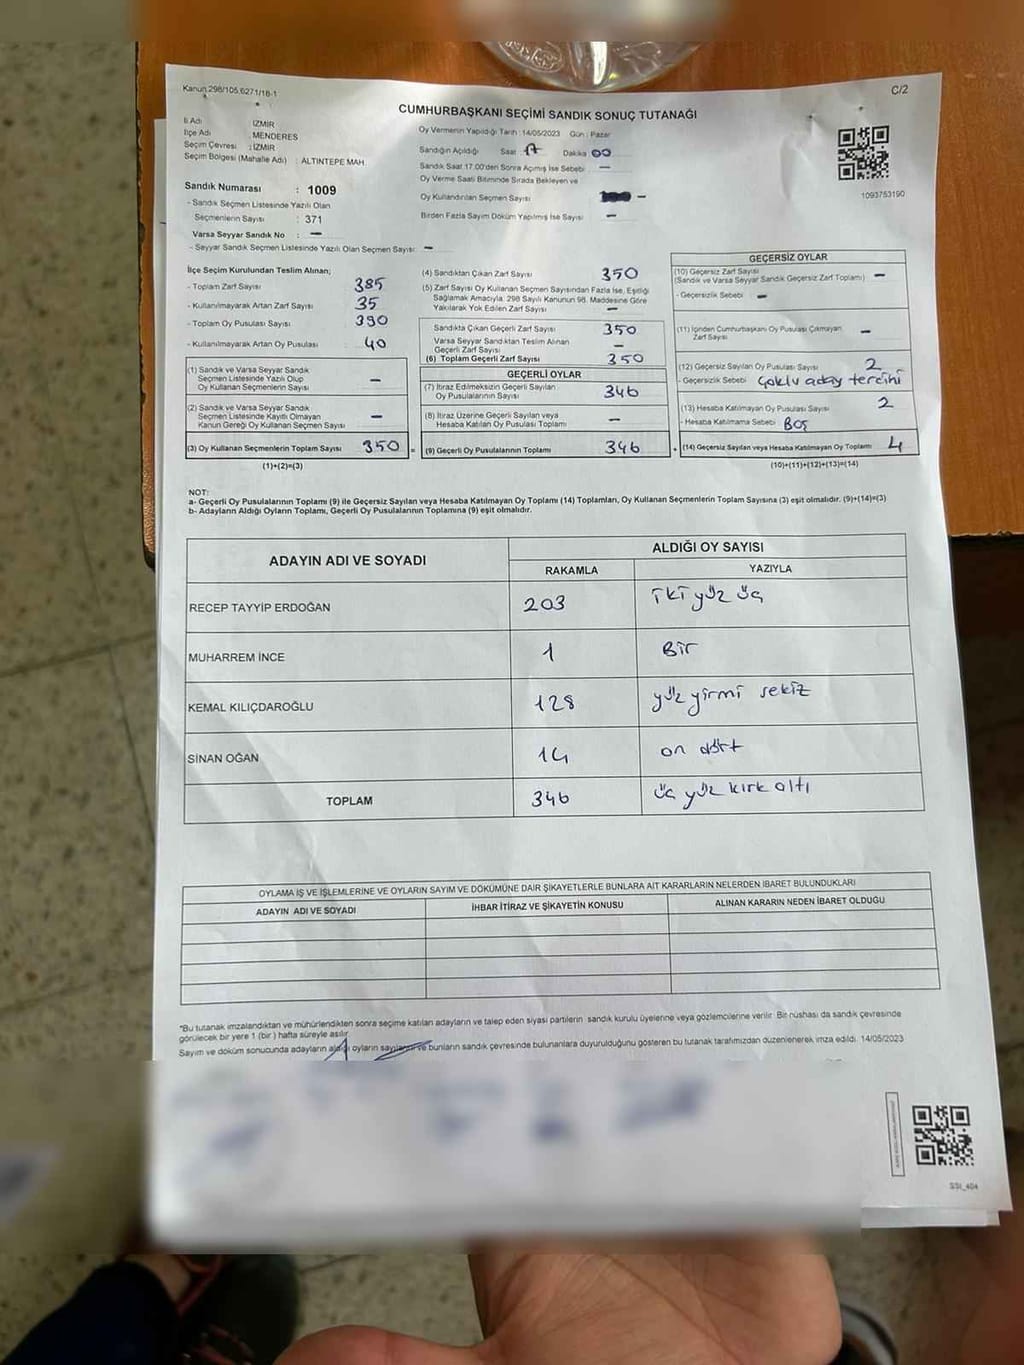 Kanun 298/105,6271/18-1
C/2
CUMHURBAŞKANI SEÇİMİ SANDIK SONUÇ TUTANAĞI
İl Adı : İZMİR
İlçe Adı : MENDERES
Seçim Çevresi : İZMİR
Seçim Bölgesi (Mahalle Adı) : ALTINTEPE MAH.
Sandık Numarası : 1009
- Sandık Seçmen Listesinde Yazılı Olan
Seçmenlerin Sayısı : 371
Varsa Seyyar Sandık No : -
- Seyyar Sandık Seçmen Listesinde Yazılı Olan Seçmen Sayısı: -
Oy Vermenin Yapıldığı Tarih : 14/05/2023 Gün : Pazar
Sandığın Açıldığı Saat 17 Dakika 00
Sandık Saat 17.00'den Sonra Açımış İse Sebebi -
Oy Verme Saati Bitiminde Sırada Bekleyen ve
Oy Kullandırılan Seçmen Sayısı -
Birden Fazla Sayım Döküm Yapılmış İse Sayısı -
1093753190
İlçe Seçim Kurulundan Teslim Alınan;
- Toplam Zarf Sayısı 385
- Kullanılmayarak Artan Zarf Sayısı 35
- Toplam Oy Pusulası Sayısı 390
- Kullanılmayarak Artan Oy Pusulası 40
(1) Sandık ve Varsa Seyyar Sandık
Seçmen Listesinde Yazılı Olup
Oy Kullanan Seçmenlerin Sayısı -
(2) Sandık ve Varsa Seyyar Sandık
Seçmen Listesinde Kayıtlı Olmayan
Kanun Gereği Oy Kullanan Seçmen Sayısı -
(3) Oy Kullanan Seçmenlerin Toplam Sayısı 350 =
(1)+(2)=(3)
(4) Sandıktan Çıkan Zarf Sayısı 350
(5) Zarf Sayısı Oy Kullanan Seçmen Sayısından Fazla İse, Eşitliği
Sağlamak Amacıyla; 298 Sayılı Kanunun 98. Maddesine Göre
Yakılarak Yok Edilen Zarf Sayısı -
Sandıkta Çıkan Geçerli Zarf Sayısı 350
Varsa Seyyar Sandıktan Teslim Alınan
Geçerli Zarf Sayısı -
(6) Toplam Geçerli Zarf Sayısı 350
GEÇERLİ OYLAR
(7) İtiraz Edilmeksizin Geçerli Sayılan
Oy Pusulalarının Sayısı 346
(8) İtiraz Üzerine Geçerli Sayılan veya
Hesaba Katılan Oy Pusulası Toplamı -
(9) Geçerli Oy Pusulalarının Toplamı 346 +
GEÇERSİZ OYLAR
(10) Geçersiz Zarf Sayısı
(Sandık ve Varsa Seyyar Sandık Geçersiz Zarf Toplamı) -
- Geçersizlik Sebebi : -
(11) İçinden Cumhurbaşkanı Oy Pusulası Çıkmayan
Zarf Sayısı -
(12) Geçersiz Sayılan Oy Pusulası Sayısı 2
- Geçersizlik Sebebi Çoklu aday tercihi
(13) Hesaba Katılmayan Oy Pusulası Sayısı 2
- Hesaba Katılmama Sebebi : Boş
(14) Geçersiz Sayılan veya Hesaba Katılmayan Oy Toplamı 4
(10)+(11)+(12)+(13)=(14)
NOT:
a- Geçerli Oy Pusulalarının Toplamı (9) ile Geçersiz Sayılan veya Hesaba Katılmayan Oy Toplamı (14) Toplamları, Oy Kullanan Seçmenlerin Toplam Sayısına (3) eşit olmalıdır. (9)+(14)=(3)
b- Adayların Aldığı Oyların Toplamı, Geçerli Oy Pusulalarının Toplamına (9) eşit olmalıdır.
ADAYIN ADI VE SOYADI
ALDIĞI OY SAYISI
RAKAMLA YAZIYLA
RECEP TAYYİP ERDOĞAN 203 iki yüz üç
MUHARREM İNCE 1 Bir
KEMAL KILIÇDAROĞLU 128 yüz yirmi sekiz
SİNAN OĞAN 14 on dört
TOPLAM 346 üç yüz kırk altı
OYLAMA İŞ VE İŞLEMLERİNE VE OYLARIN SAYIM VE DÖKÜMÜNE DAİR ŞİKAYETLERLE BUNLARA AİT KARARLARIN NELERDEN İBARET BULUNDUKLARI
ADAYIN ADI VE SOYADI İHBAR İTİRAZ VE ŞİKAYETİN KONUSU ALINAN KARARIN NEDEN İBARET OLDUĞU
*Bu tutanak imzalandıktan ve mühürlendikten sonra seçime katılan adayların ve talep eden siyasi partilerin sandık kurulu üyelerine veya gözlemcilerine verilir. Bir nüshası da sandık çevresinde
görülecek bir yere 1 (bir) hafta süreyle asılır.
Sayım ve döküm sonucunda adayların aldığı oyların sayılarını ve bunların sandık çevresinde bulunanlara duyurulduğunu gösteren bu tutanak tarafımızdan düzenlenerek imza edildi. 14/05/2023
SSI_404